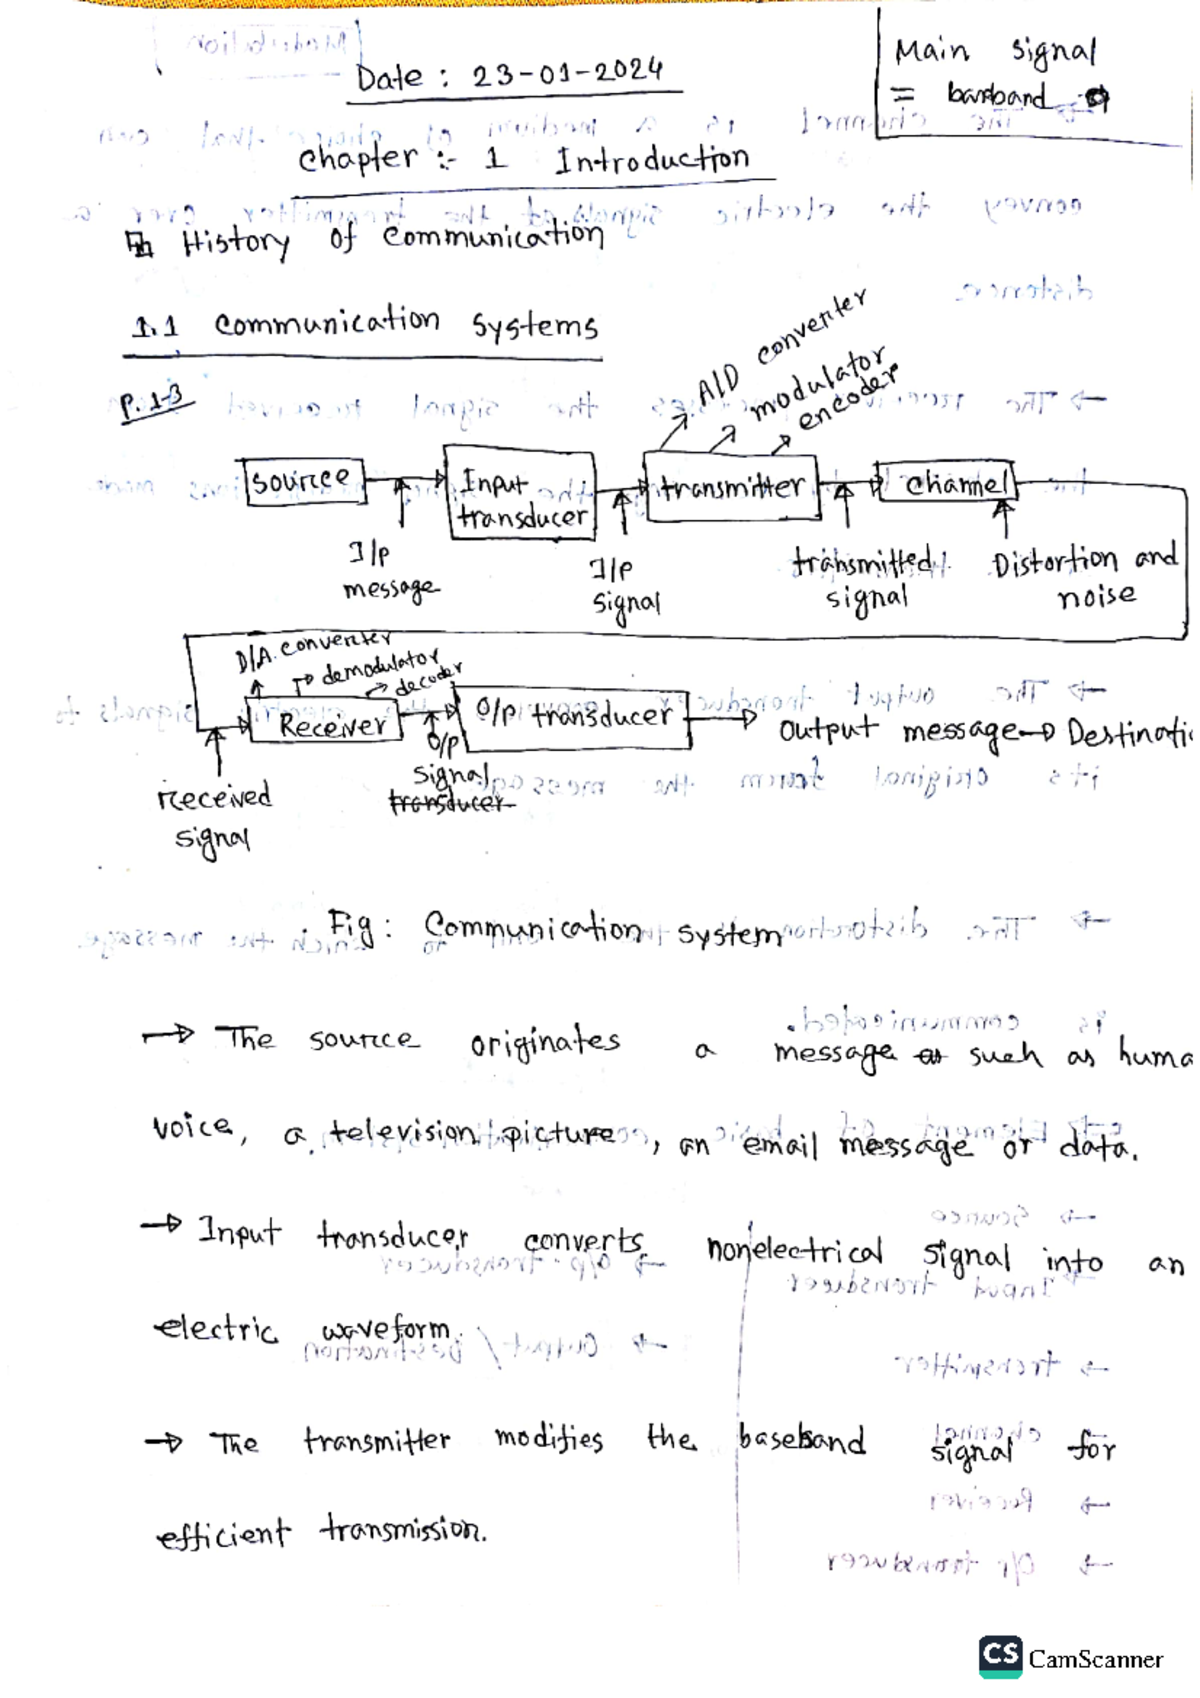 Date : 23-01-2024
Main signal
= barsband
chapter :- 1 Introduction
History of communication
1.1 communication systems
P. 1-3
A/D converter
modulator
encoder
source
Input
transducer
transmitter
channel
I/p
message
I/p
signal
transmitted
signal
Distortion and
noise
D/A converter
demodulator
decoder
Receiver
O/p transducer
output message → Destinatio
O/p
signal
transducer
received
signal
Fig : Communication system
→ The source originates a message as such as huma
voice, a television picture, an email message or data.
→ Input transducer converts nonelectrical signal into an
electric waveform.
→ The transmitter modifies the baseband signal for
efficient transmission.
CS CamScanner